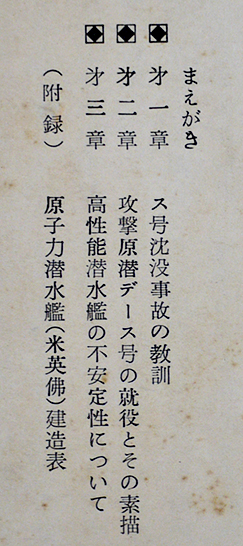 まえがき
才一章 ス号沈没事故の教訓
才二章 攻撃原潜デース号の就役とその素描
才三章 高性能潜水艦の不安定性について
（附録） 原子力潜水艦（米英佛）建造表